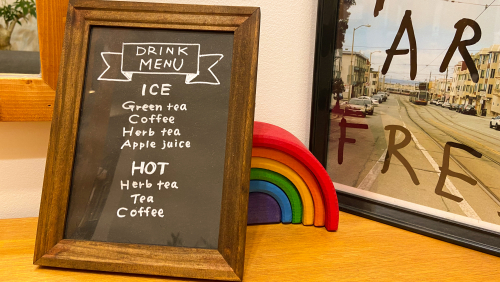 DRINK
MENU
ICE
Green tea
Coffee
Herb tea
Apple juice
HOT
Herb tea
Tea
Coffee
AR
FRE